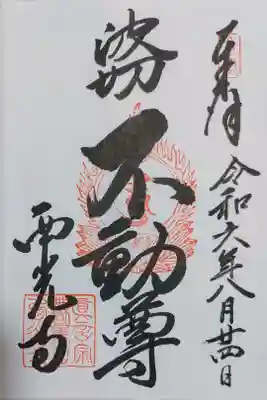 奉拝 令和六年八月廿四日
波切不動尊
西光寺